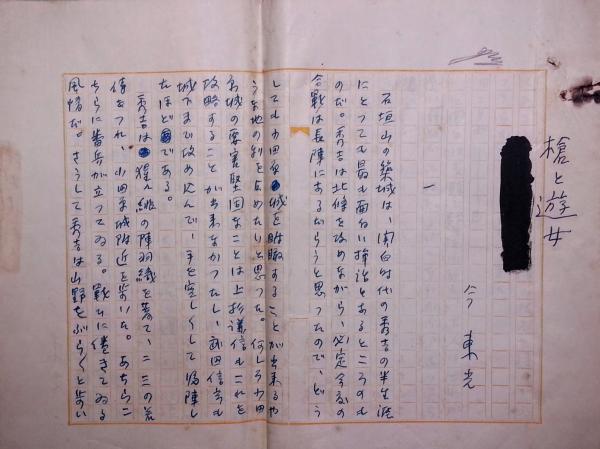 槍と遊女
今東光
一
石垣山の築城は、関白時代の秀吉の半生涯
にとつても最も面白い挿話とあるところのも
のだ。秀吉は北條を攻めながら、必定今度の
合戦は長陣にあるだらうと思つたので、どう
しても小田原城を眸睨することが出来るや
うな地の利を占めたいと思つた。何しろ小田
原城の要害堅固なことは上杉謙信もこれを
攻略することが出来なかつたし、武田信玄も
城下まで攻め込んで、手を空しくして帰陣し
たほどである。
秀吉は猩々緋の陣羽織を着て、二三の若
侍をつれ、小田原城附近を歩いた。あちらこ
ちらに番兵が立つてゐる。戦ひに倦きてゐる
風情だ。さうして秀吉は山野をぶらぶらと歩い